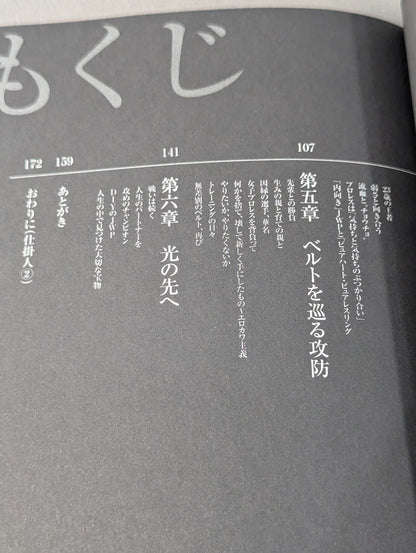 もくじ
23歳の王者
弱さと向き合う
流血とチョキチョ
プロレスは「気持ちと気持ちのぶつかり合い」
「内向き」JWPと「ピュアハート・ピュアレスリング
107
第五章 ベルトを巡る攻防
先輩との勝負
生みの親と育ての親と
因縁の選手、華名
女子プロレスを背負って
何かを捨て、壊して新しく手にしたもの~エロカワ主義
やりたいか、やりたくないか
トレーニングの日々
無差別のベルト、再び
141
第六章 光の先へ
戦いは続く
人生のパートナーを
攻めのチャンピオン
DIYのJWP
人生の中で見つけた大切な宝物
159
あとがき
172
おわりに(仕掛人②)